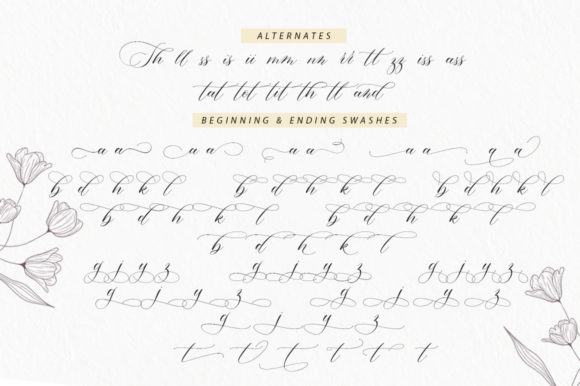 ALTERNATES
Th ll ss is ii mm nn rr tt zz iss ass
tat tot tit th tl and
BEGINNING & ENDING SWASHES
a a a a a a a a a a
b d h k l b d h k l b d h k l
b d h k l b d h k l
b d h k l
g j y z g j y z g j y z
g j y z g j y z
g j y z
t t t t t t